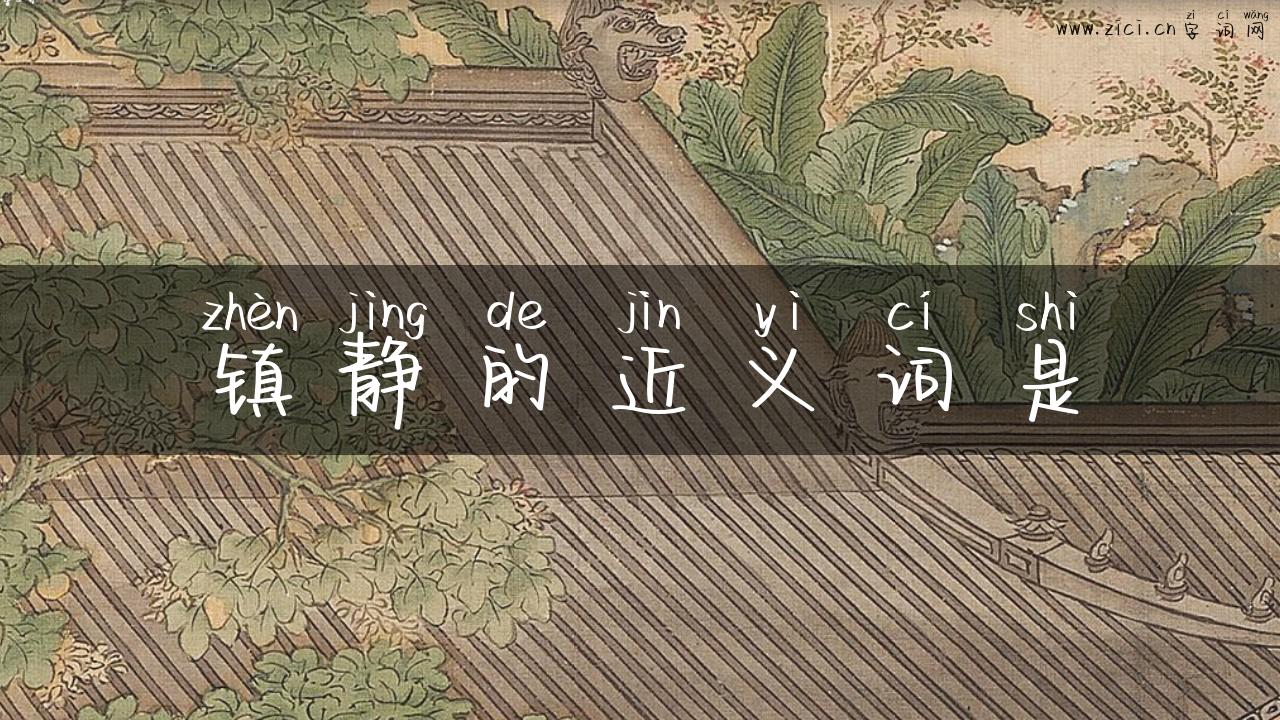 zì cí wǎng
www.zici.cn 字词网
zhèn jìng de jìn yì cí shì
镇静的近义词是